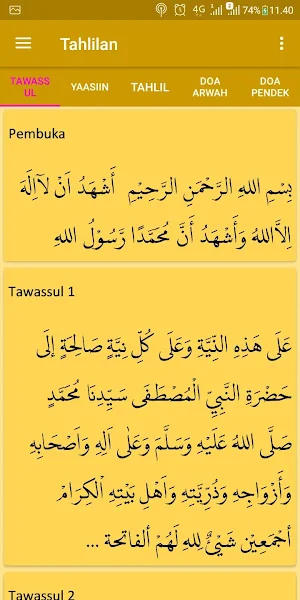 4G 74% 11.40
Tahlilan
TAWASS
UL
YAASIIN
TAHLIL
DOA
ARWAH
DOA
PENDEK
Pembuka
بِسْمِ اللهِ الرَّحْمَنِ الرَّحِيْمِ أَشْهَدُ اَنْ لآاِلَهَ
اِلاَّاللهُ وَأَشْهَدُ أَنَّ مُحَمَّدًا رَّسُوْلُ اللهِ
Tawassul 1
عَلَى هَذِهِ النِّيَّةِ وَعَلَى كُلِّ نِيَّةٍ صَالِحَةٍ إلَى
حَضْرَةِ النَّبِيِّ الْمُصْطَفَى سَيِّدِنَا مُحَمَّدٍ
صَلَّى اللهُ عَلَيْهِ وَسَلَّمَ وَعَلَى اَلِهِ وَاَصْحَابِهِ
وَأَزْوَاجِهِ وَذُرِّيَّتِهِ وَاَهْلِ بَيْتِهِ الْكِرَامْ
أجْمَعِيْن شَيْئٌ لِلهِ لَهُمْ ألفاتحة ...
Tawassul 2